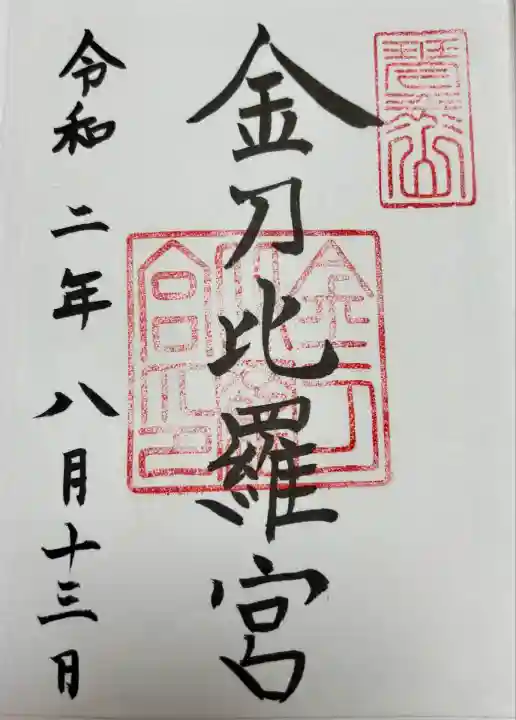 金刀比羅宮
令和二年八月十三日